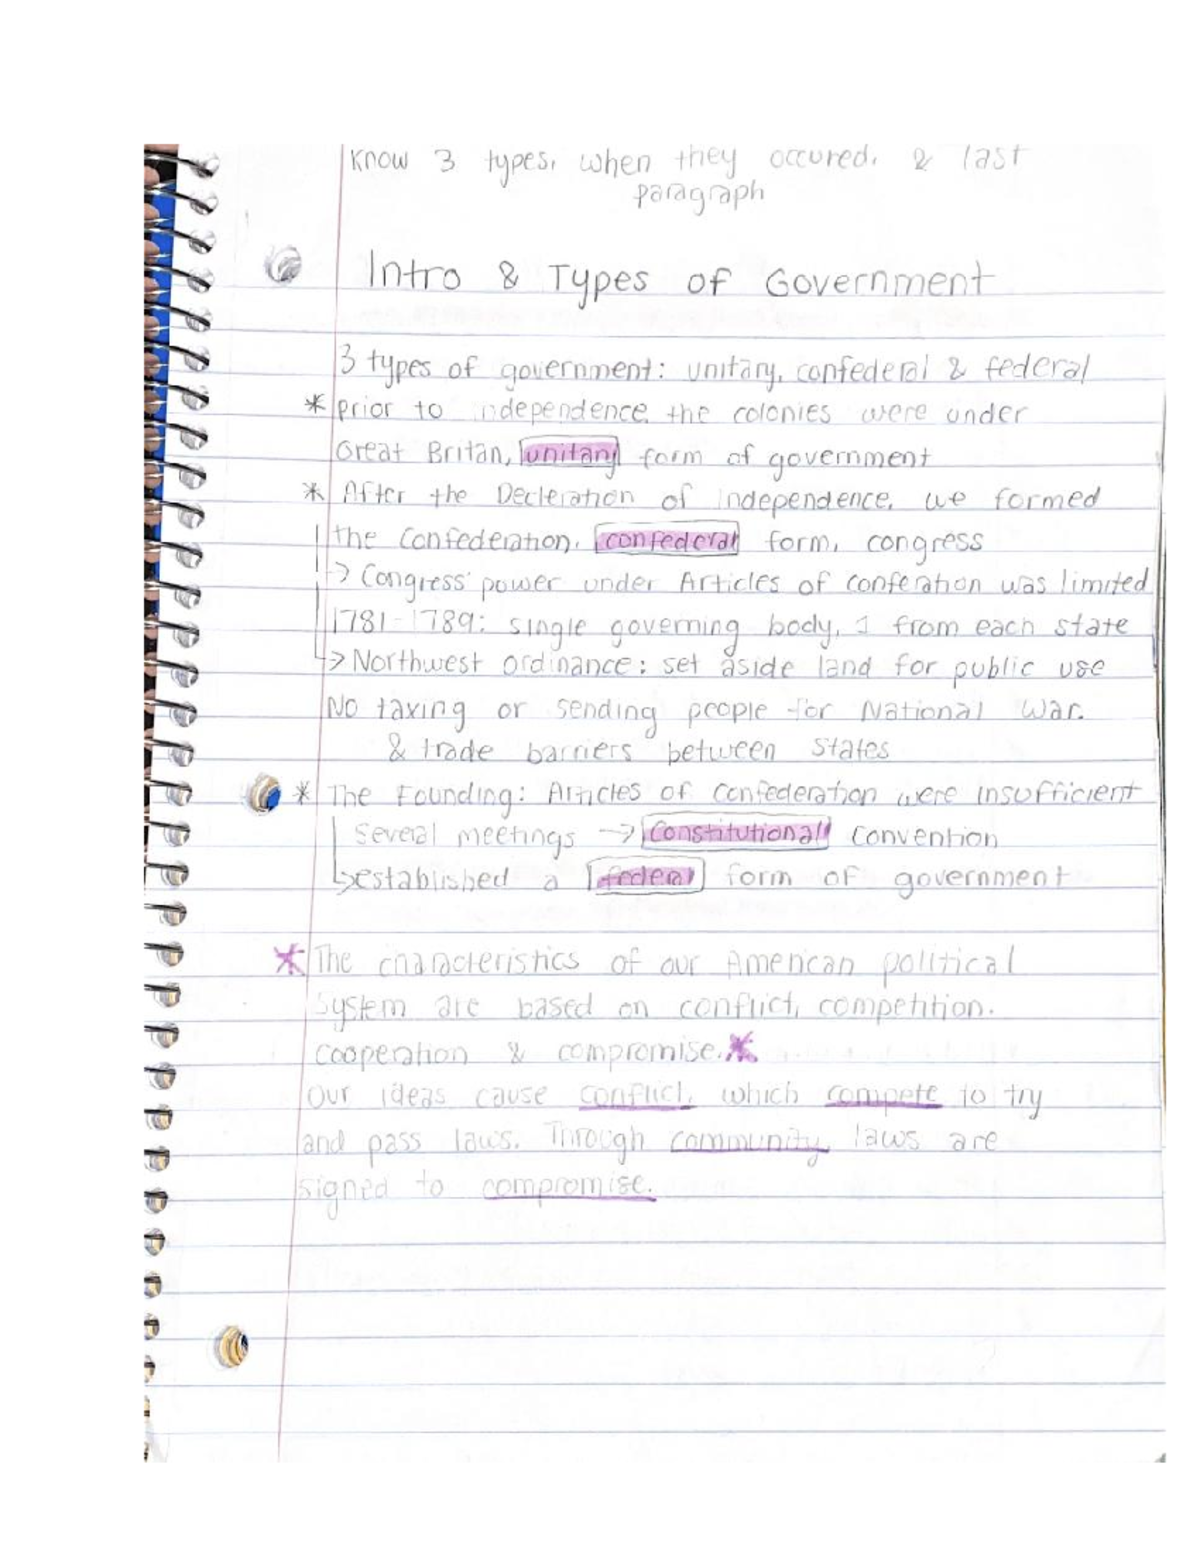 Know 3 types, when they occured, & last
paragraph
Intro & Types of Government
3 types of government: unitary, confederal & federal
* prior to independence, the colonies were under
Great Britan, unitary form of government
* After the Decleration of Independence, we formed
the Confederation, confederal form, congress
-> Congress' power under Articles of conferation was limited
1781-1789: single governing body, 1 from each state
-> Northwest ordinance: set aside land for public use
No taxing or sending people for National War.
& trade barriers between states
* The Founding: Articles of confederation were insufficient
Several meetings -> Constitutional convention
->established a federal form of government
* The characteristics of our American political
System are based on conflict, competition.
cooperation & compromise.*
Our ideas cause conflict, which compete to try
and pass laws. Through community, laws are
signed to compromise.